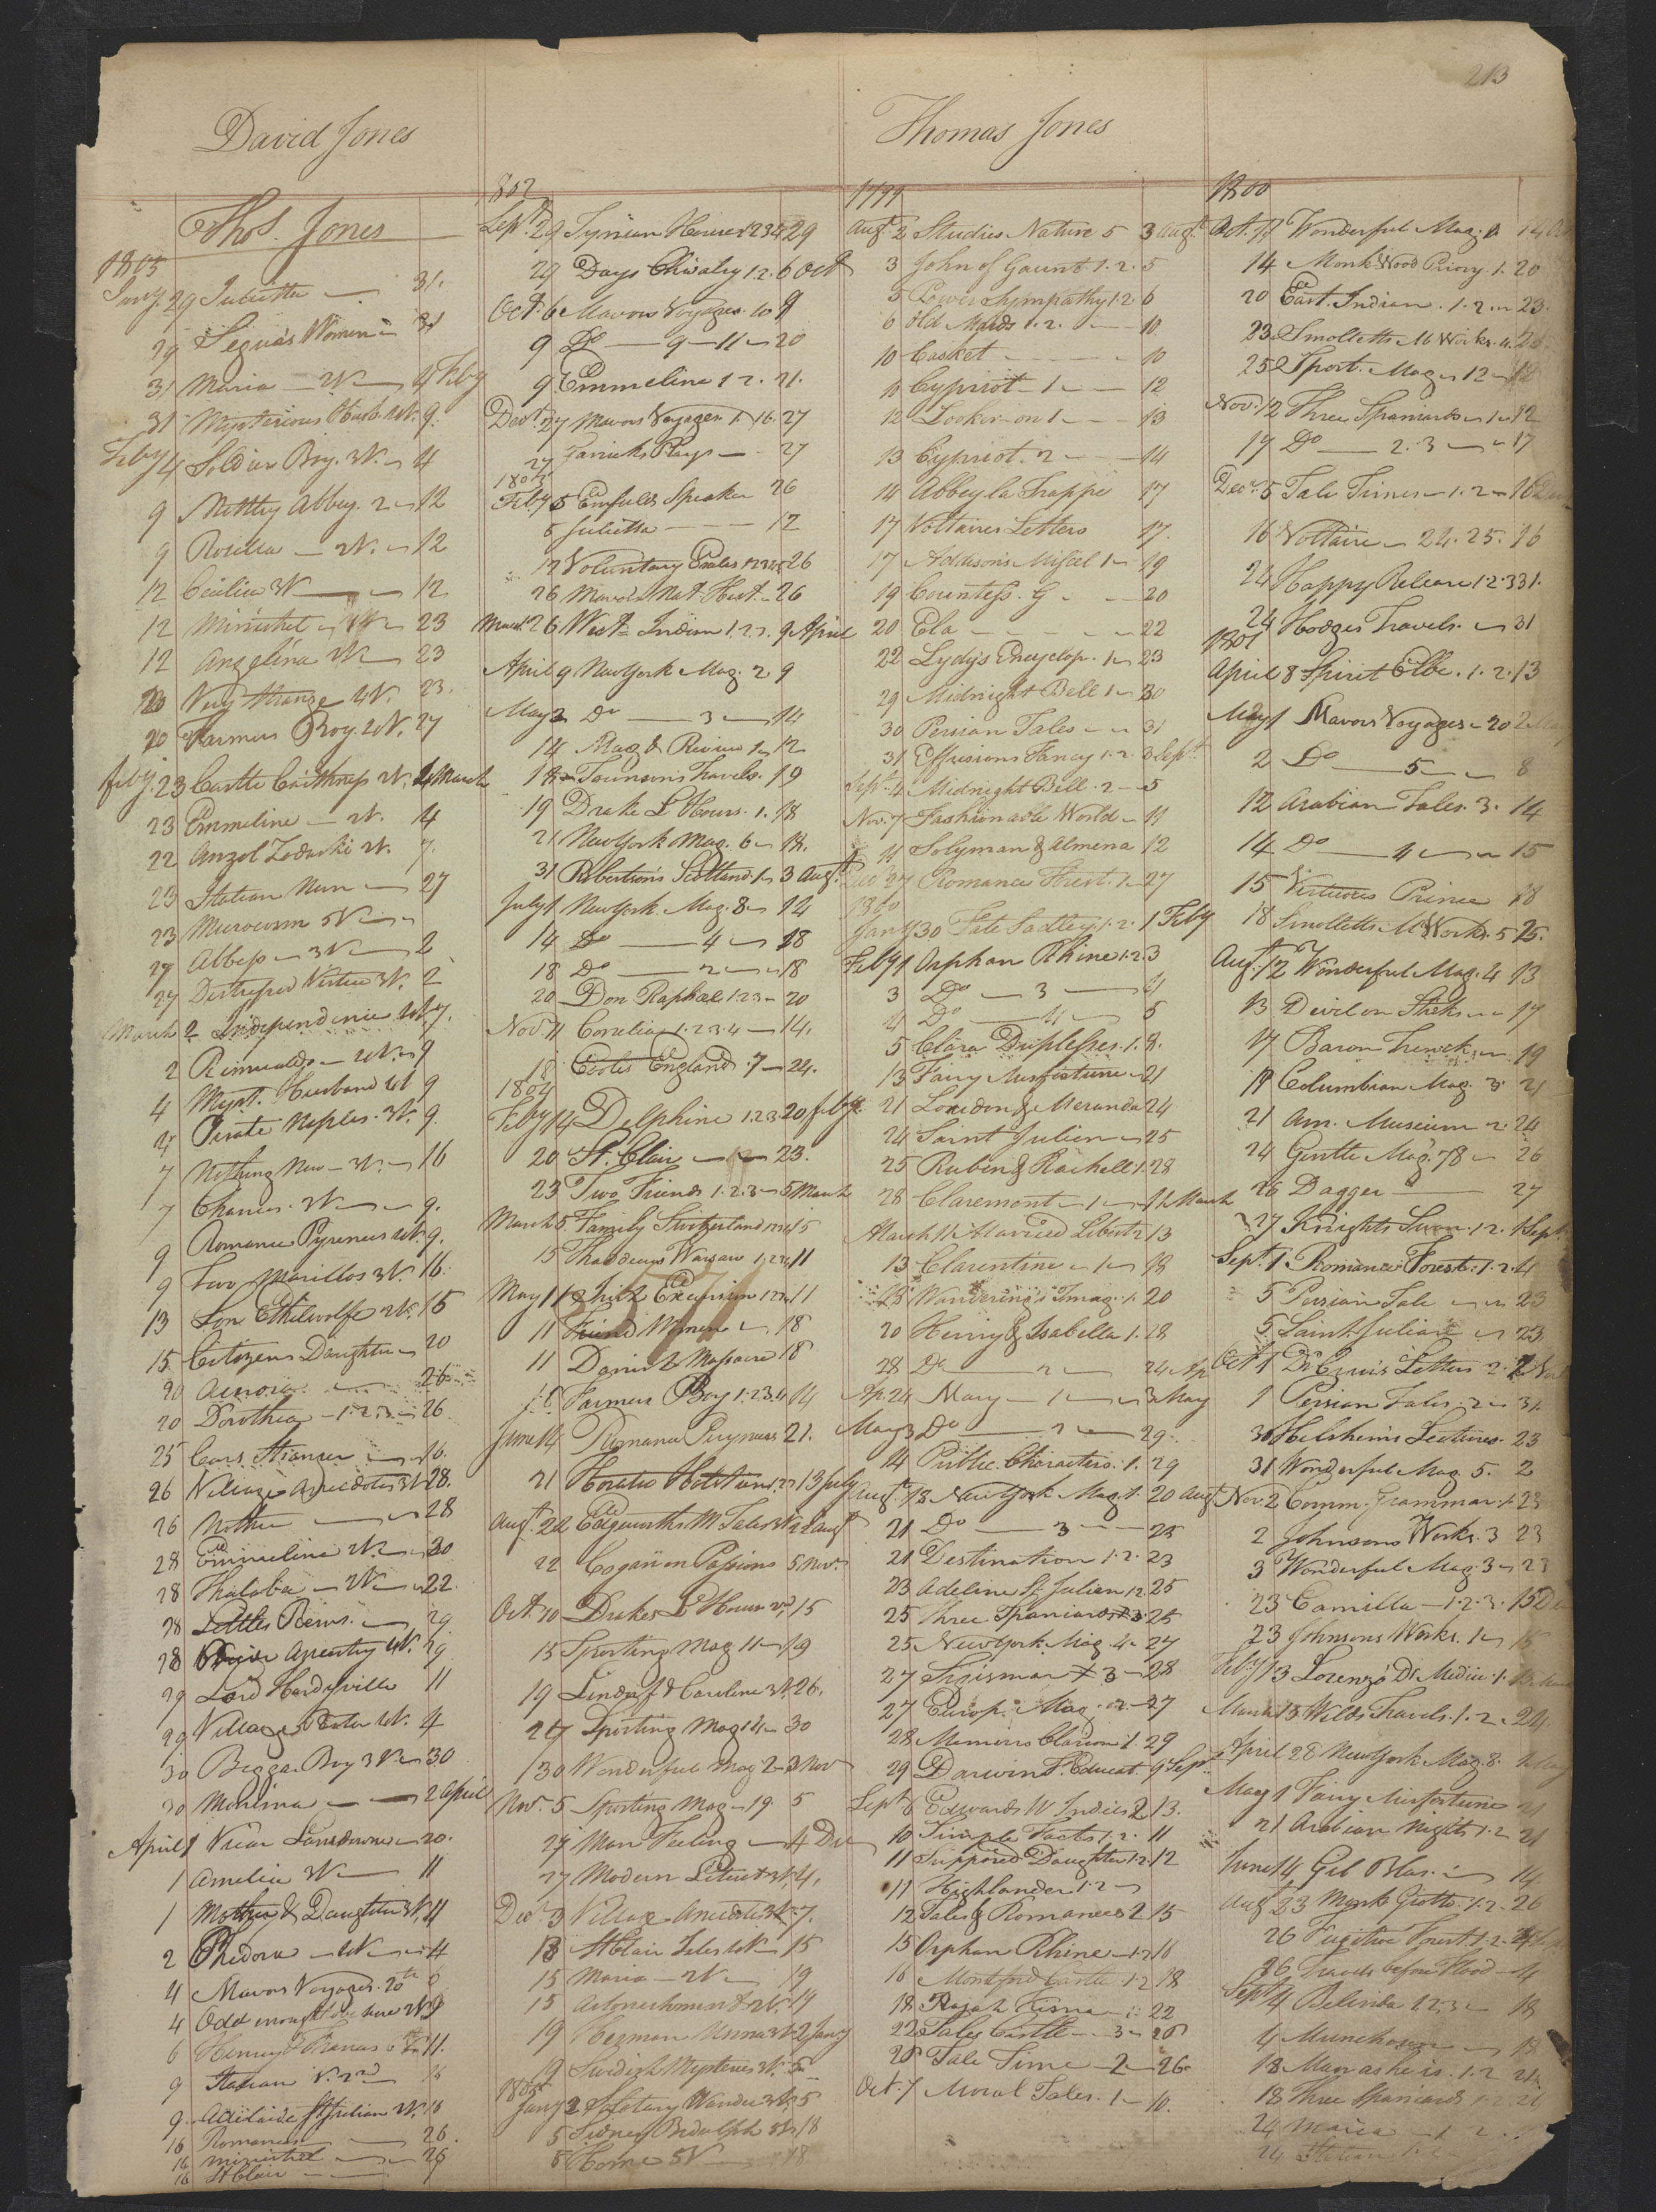 213
David Jones
Thomas Jones
Thos. Jones
1805
Jany. 29 Julietta — 31.
29 Segur's Women — 31
31 Maria — 2V — 4 Feby
31 Mysterious Husb. 4V. 9.
Feby 4 Soldier Boy. 3V. — 4
9 Nettley Abbey. 2 — 12
9 Rosella — 2V. — 12
12 Cecilia 3V — 12
12 Minstrel — 23
12 Angelina 2V — 23
20 Very Strange 4V. 23.
20 Farmers Boy. 4V. 27
Feby. 23 Castle Caithness 2V. 4 March
23 Emmeline — 2V. 4
22 Anzol 2V. 7.
23 Italian Nun — 27
23 Microcosm 5V —
27 Abbess — 3V — 2
27 Distressed Virtue 3V. 2
March 2 Independence 4V. 7.
2 Rimualdo — 4V. — 9
4 Myst. Husband 4V 9
4 Pirate Naples. 3V. 9.
7 Nothing New — 3V. — 16
7 Chances. 3V — 9.
9 Romance Pyrenees 4V. 9.
9 Two Marillos 3V. 16.
13 Son Ethelwolfe 2V. 15
15 Citizens Daughter — 20
20 Aurora. — 26
20 Dorothea — 1.2.3 — 26
25 — 16.
26 Village Anecdotes 3V 28.
26 Mother — 28
28 Emmeline 2V — 30
28 Thalaba — 2V — 22.
28 Settles — 29
28 Ancestry 4V. 29
29 Lord Hardyville 11
29 Village Pastor 4V. 4
30 Beggar Boy 3V — 30
30 Monima — 2 April
April 1 Vicar Lansdowne — 20.
1 Amelia 3V — 11
1 Mother & Daughter 3V. 11
2 Phedora — 4V — 11
4 Mavors Voyages. 20th 6
4 Odd enough to be sure 2V. 9
6 11.
9 Italian V. 2nd 16
9. Adelaide St Julian 2V. 16
16 Romances — 26.
16 Minstrel — 26
16 St Clair —
1802
Sept. 29 Tynian House 1 2 3 4 29
29 Days Chivalry 1.2. 6 Oct
Oct. 6 Mavors Voyages. 10 9
9 Do — 9 — 11 — 20
9 Emmeline 1 2. 21.
Decr. 27 Mavors Voyages 1. 16. 27
27 Garricks Plays — 27
1803
Feby 5 Enfields Speaker 26
5 Julietta — 12
12 Voluntary Exiles 1 2 3 4 5 26
26 Mavors Nat. Hist. — 26
March 26 West Indian 1.2. 9 April
April 9 New York Mag. 2. 9
May 2 Do — 3 — 14
14 Mag. & Review 1 — 12
18 Townson's Travels. 19
19 Drake L Hours. 1. 18
21 New York Mag. 6 — 18.
31 Robertson's Scotland. 1 — 3 Augt.
July 1 New York. Mag. 8 — 14
14 Do — 4 — 18
18 Do — 2 — 18
20 Don Raphael 1.2.3 — 20
Nov. 11 Corelia 1.2.3.4 — 14.
18 England 7 — 24.
1804
Feby 14 Delphine 1.2.3 20 Feby.
20 St. Clair — 23.
23 Two Friends 1.2.3 — 5 March
March 5. Family Switzerland 15
15 Thaddeus Warsaw 1.2.3.4 11
May 11 Excursion 1.2. 11
11 Friend Women — 18
11 Massacre 18
18 Farmers Boy 1.2.3.4 14
June 14 Romance Pyrenees 21.
21 Horatio Holstein 1.2.3 13 July
Augt. 22 Edgeworths M Tales 3V. 22 Augt
22 Cogan on Passions 5 Nov.
Oct. 10 Drakes L Hours 2V. 15
15 Sporting Mag 11 — 19
19 Lindorf & Caroline 3V. 26.
27 Sporting Mag 14 — 30
30 Wonderful Mag 2 — 3 Nov
Nov. 5 Sporting Mag — 19. 5
27 Man Feeling — 4 Dec
27 Modern Literat. 3V. 4.
Decr. 3 Village Anecdotes 3V. 7.
13 St Clair Isles 4V — 15
15 Maria — 2V — 19
15 Astonishment 2V. 19
19 Herman Unna 3V. 2 Jany
19 Swedish Mysteries 3V. 5
1805
Jany 2 Solitary Wander 3V. 5
5 Sidney Bidulph 5V. 18
5 Home 5V 18
1799
Augt. 2 Studies Nature 5 3 Augt.
3 John of Gaunt 1.2. 5
5 Power Sympathy 1.2 6
6 Old Maids 1.2. — 10
10 Casket — 10
11 Cypriot — 1 — 12
12 Looker-on 1 — 13
13 Cypriot. 2 — 14
14 Abbey la Trappe 17
17 Voltaires Letters 17.
17 Addison's Miscel 1 — 19
19 Countess. G — 20
20 Ela — 22
22 Lydy's Encyclop. 1 — 23
29 Midnight Bell 1 — 30
30 Persian Tales — 31
31 Effusions Fancy 1.2. 3 Sept.
Sept. 4 Midnight Bell. 2 — 5
Nov. 7 Fashionable World — 11
11 Solyman & Almena 12
Decr 27 Romance Forest. 1 — 27
1800
Jany 30 Fate Sadley 1.2. 1 Feby
Feby 1 Orphan Rhine 1.2. 3
3 Do — 3 — 4
4 Do — 4 — 5
5 Clara Duplessis. 1. 8.
13 Fairy Misfortune — 21
21 Loredon & Meranda 24
24 Saint Julien — 25
25 Ruben & Rachell 1. 28
28 Claremont — 1 — 11 March
March 11 Married Libertn 13
13 Clarentine — 1 — 18
18 Wanderings Imag. 1. 20
20 Henry & Isabella 1. 28
28 Do — 2 — 24 Ap
Ap. 24 Mary — 1 — 3 May
May 3 Do — 2 — 29
14 Public Characters. 1. 29
Augt. 13 New York Mag. 1. 20 Augt
21 Do — 3 — 25
21 Destination 1.2. 23
23 Adeline St. Julien 1 2. 25
25 Three Spaniards 2.3. 25
25 New York. Mag. 4 — 27
27 Sigismar 3 — 28
27 Europ. Mag. — 27
28 Memoirs Clarion 1. 29
29 Darwin F. Educat. 9 Sept.
Sept. 8 Edwards W Indies 2 13.
10 Simple Facts 1.2. 11
11 Supposed Daughter 1.2 12
11 Highlander 1.2 —
12 Tales & Romances 2 15
15 Orphan Rhine — 1.2 16
16 Montford Castle 1.2 18
18 Rajah Kisna — 22
22 Tales Castle — 3 — 26
26 Tale Time — 2 — 26
Oct. 7 Moral Tales. 1 — 10.
1800
Oct. 17 Wonderful Mag. 1 14
14 Monk Wood Priory. 1. 20
20 East. Indian. 1.2 — 23.
23 Smolletts M Works. 4.
25 Sport. Mag — 12 —
Nov. 12 Three Spaniards — 1 — 12
17 Do — 2.3 — 17
Decr. 5 Tale Times — 1.2 — 16 Decr
16 Voltaire — 24.25. 16
24 Happy Release 1.2.3 31.
24 Hodges Travels. — 31
1801
April 8 Spirit Elbe. 1.2. 13
May 1 Mavors Voyages — 20 2 May
2 Do — 5 — 8
12 Arabian Tales. 3. 14
14 Do — 4 — 15
15 Virtuous Prince 18
18 Smolletts M Works. 5 25.
Augt. 12 Wonderful Mag. 4 13
13 Devil on Sticks — 17
17 Baron Trenck — 19
19 Columbian Mag. 3 21
21 Am. Museum 2. 24
24 Gentle Mag. 78 — 26
26 Dagger — 27
27 Knights Swan. 1.2. 1 Sept.
Sept. 1 Romance Forest. 1.2. 4
5 Persian Tale — 23
5 Saint Julian — 23
Oct. 1 Letters 2. 2 Nov
1 Persian Tales. 2 — 31
30 Helsheims Lectures. 23
31 Wonderful Mag. 5. 2
Nov. 2 Comm. Grammar. 1. 23
2 Johnsons Works. 3 23
3 Wonderful Mag. 3 — 23
23 Camilla — 1.2.3. 15 Dec
23 Johnsons Works. 1 — 15
Feby 13 Lorenzo D. Medici. 1.
March 15 Wilds Travels. 1.2. 24
April 28 New York Mag. 8. May
May 1 Fairy Misfortune 21
21 Arabian Nights 1.2 21
June 14 Gil Blas. — 14
Augt. 23 Monk Grotto. 1.2. 26
26 Fugitive Forest. 1.2.
26 Travels before Flood — 4
Sept. 4 Belinda 1 2 3 — 18
4 Munchausen — 18
18 Man as he is. 1.2 24
18 Three Spaniards 1.2 24
24 Maria — 1 2
24 Italian 1.2